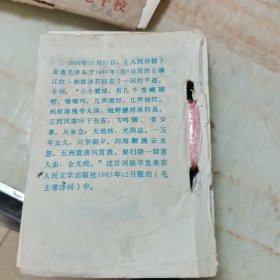 1966年12月31日，《人民日报》
发表毛泽东于1963年1月9日写的《满
江红·和郭沫若同志》一词的手迹，
全词：“小小寰球，有几个苍蝇碰
壁。嗡嗡叫，几声凄厉，几声抽泣。
蚂蚁缘槐夸大国，蚍蜉撼树谈何易。
正西风落叶下长安，飞鸣镝。多少
事，从来急；天地转，光阴迫。一万
年太久，只争朝夕。四海翻腾云水
怒，五洲震荡风雷激。要扫除一切害
人虫，全无敌。”这首词最早发表在
人民文学出版社1963年12月版的《毛
主席诗词》中。